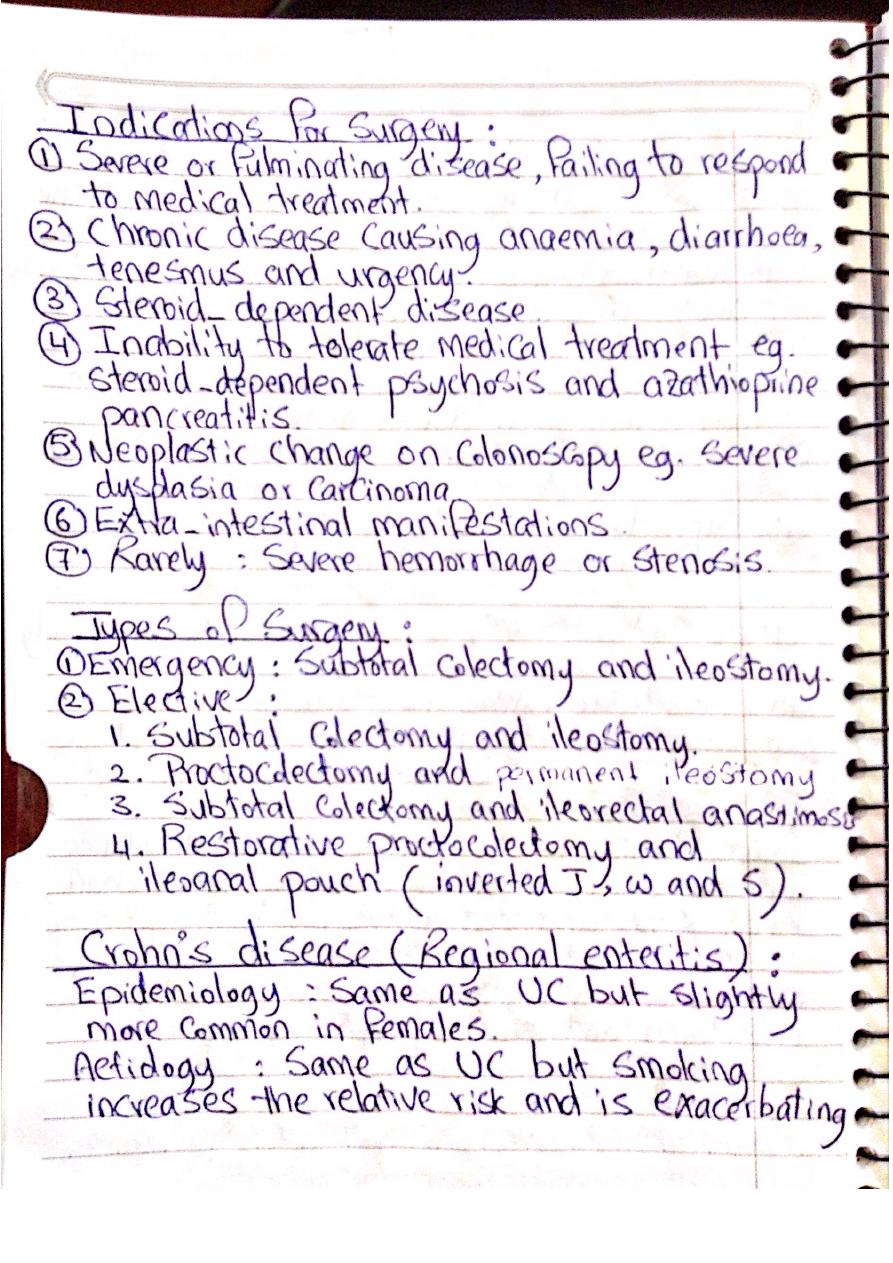 Indications for Surgery :
① Severe or fulminating disease, failing to respond
to medical treatment.
② Chronic disease causing anaemia, diarrhoea,
tenesmus and urgency.
③ Steroid-dependent disease.
④ Inability to tolerate medical treatment eg.
steroid-dependent psychosis and azathioprine
pancreatitis.
⑤ Neoplastic change on Colonoscopy eg. Severe
dysplasia or Carcinoma
⑥ Extra-intestinal manifestations.
⑦ Rarely : Severe hemorrhage or Stenosis.
Types of Surgery :
① Emergency : Subtotal Colectomy and ileostomy.
② Elective :
1. Subtotal Colectomy and ileostomy.
2. Proctocolectomy and permanent ileostomy
3. Subtotal Colectomy and ileorectal anastimosis
4. Restorative proctocolectomy and
ileoanal pouch (inverted J, W and S).
Crohn's disease (Regional enteritis) :
Epidemiology : Same as UC but slightly
more Common in females.
Aetiology : Same as UC but Smoking
increases the relative risk and is exacerbating